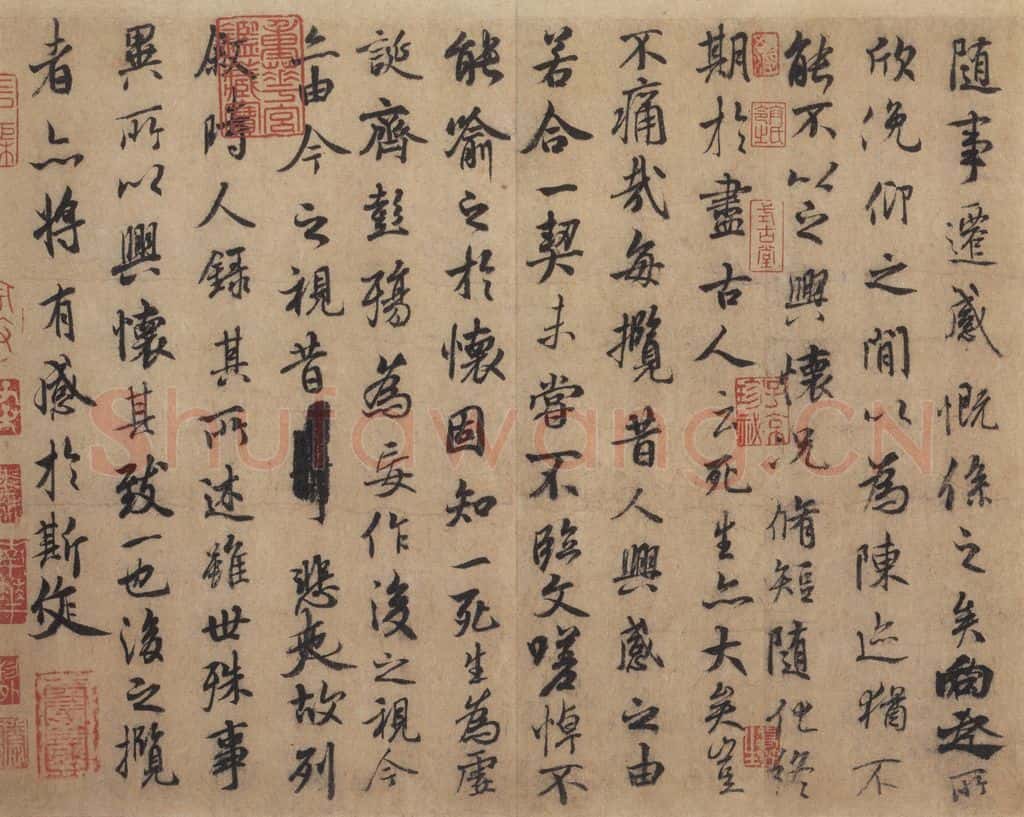 随事遷感慨係之矣向之所
欣俛仰之閒以為陳迹猶不
能不以之興懷况脩短随化終
期於盡古人云死生亦大矣豈
不痛哉每攬昔人興感之由
若合一契未甞不臨文嗟悼不
能喻之於懷固知一死生為虚
誕齊彭殤為妄作後之視今
亦由今之視昔 悲夫故列
叙時人錄其所述雖世殊事
異所以興懷其致一也後之攬
者亦將有感於斯文
式古堂
Shufawang.CN